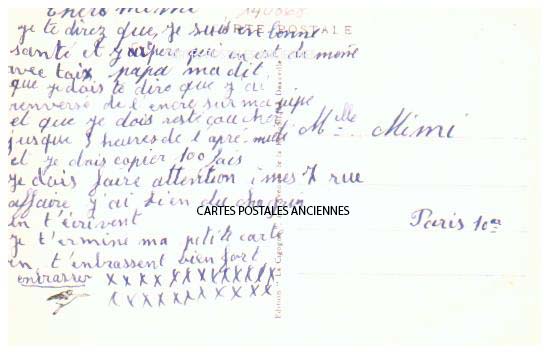 chère mimi
je te direz que, je suis en bonne
santé et j'espere qui en est de mème
avec toix papa ma dit,
que je dois te dire que j'ai
renversé de l'encre sur ma jupe
et que je dois resté couché
jusque 3 heures de l'apré-midi
et je dois copier 100 fois
je dois faire attention à mes
affaire j'ai bien du chagrin
en t'écrivent
je t'ermine ma petite carte
en t'enbrassent bien fort
enbrasser x x x x x x x x x x x x
x x x x x x x x x x x
CARTE POSTALE
Melle Mimi
7 rue
Paris 10er
Edition "La Cigogne"
CARTES POSTALES ANCIENNES